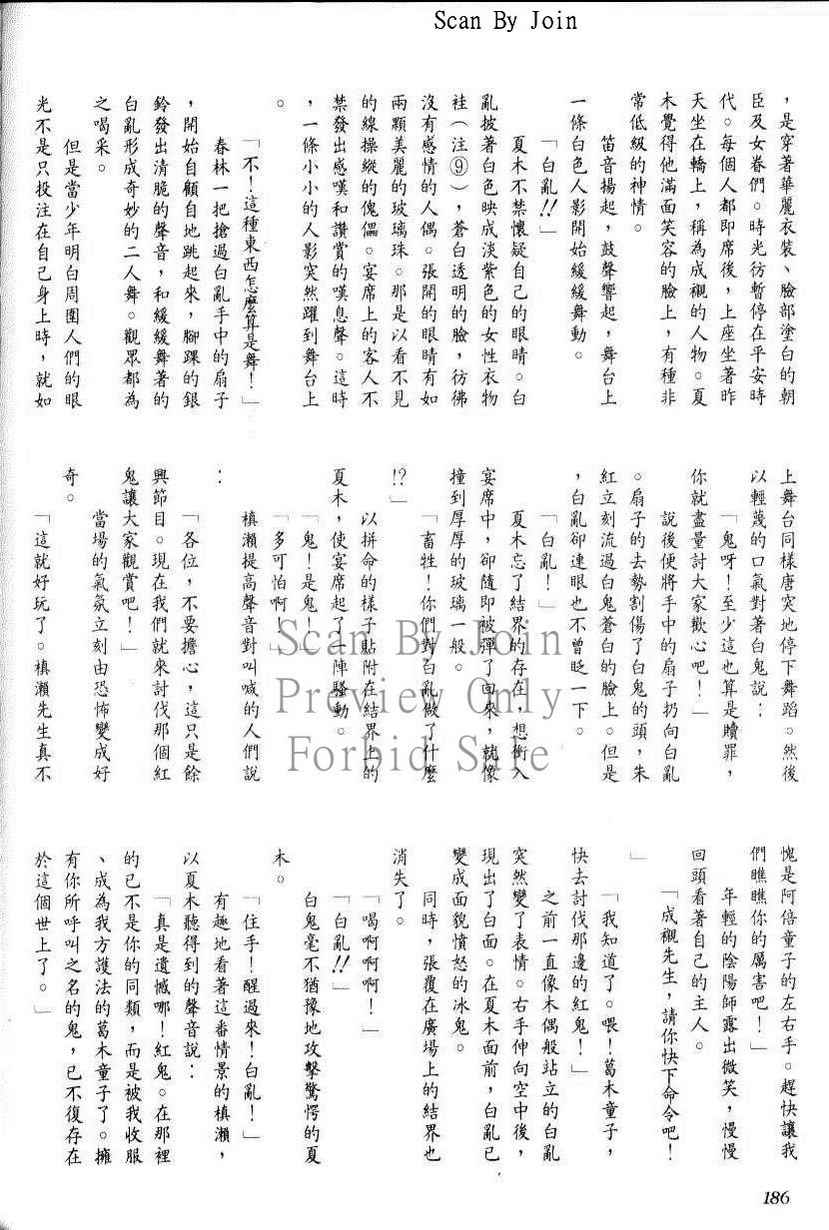 Scan By Join
，是穿著華麗衣裝、臉部塗白的朝
臣及女眷們。時光彷暫停在平安時
代。每個人都即席後，上座坐著昨
天坐在轎上，稱為成襯的人物。夏
木覺得他滿面笑容的臉上，有種非
常低級的神情。
笛音揚起，鼓聲響起，舞台上
一條白色人影開始緩緩舞動。
「白亂!!」
夏木不禁懷疑自己的眼睛。白
亂披著白色映成淡紫色的女性衣物
袿（注⑨），蒼白透明的臉，彷彿
沒有感情的人偶。張開的眼睛有如
兩顆美麗的玻璃珠。那是以看不見
的線操縱的傀儡。宴席上的客人不
禁發出感嘆和讚賞的嘆息聲。這時
，一條小小的人影突然躍到舞台上
。
「不！這種東西怎麼算是舞！」
春林一把搶過白亂手中的扇子
，開始自顧自地跳起來，腳踝的銀
鈴發出清脆的聲音，和緩緩舞著的
白亂形成奇妙的二人舞。觀眾都為
之喝采。
但是當少年明白周圍人們的眼
光不是只投注在自己身上時，就如
上舞台同樣唐突地停下舞蹈。然後
以輕蔑的口氣對著白鬼說：
「鬼呀！至少這也算是贖罪，
你就盡量討大家歡心吧！」
說後便將手中的扇子扔向白亂
。扇子的去勢割傷了白鬼的頭，朱
紅立刻流過白鬼蒼白的臉上。但是
，白亂卻連眼也不曾眨一下。
「白亂！」
夏木忘了結界的存在，想衝入
宴席中，卻隨即被彈了回來，就像
撞到厚厚的玻璃一般。
「畜牲！你們對白亂做了什麼
!?」
以拼命的樣子貼附在結界上的
夏木，使宴席起了一陣騷動。
「鬼！是鬼！」
「多可怕啊！」
槙瀨提高聲音對叫喊的人們說
：
「各位，不要擔心，這只是餘
興節目。現在我們就來討伐那個紅
鬼讓大家觀賞吧！」
當場的氣氛立刻由恐怖變成好
奇。
「這就好玩了。槙瀨先生真不
愧是阿倍童子的左右手。趕快讓我
們瞧瞧你的厲害吧！」
年輕的陰陽師露出微笑，慢慢
回頭看著自己的主人。
「成襯先生，請你快下命令吧！
」
「我知道了。喂！葛木童子，
快去討伐那邊的紅鬼！」
之前一直像木偶般站立的白亂
突然變了表情。右手伸向空中後，
現出了白面。在夏木面前，白亂已
變成面貌憤怒的冰鬼。
同時，張覆在廣場上的結界也
消失了。
「喝啊啊啊！」
「白亂!!」
白鬼毫不猶豫地攻擊驚愕的夏
木。
「住手！醒過來！白亂！」
有趣地看著這番情景的槙瀨，
以夏木聽得到的聲音說：
「真是遺憾哪！紅鬼。在那裡
的已不是你的同類，而是被我收服
、成為我方護法的葛木童子了。擁
有你所呼叫之名的鬼，已不復存在
於這個世上了。」
Scan By Join
Preview Only
Forbid Sure
186